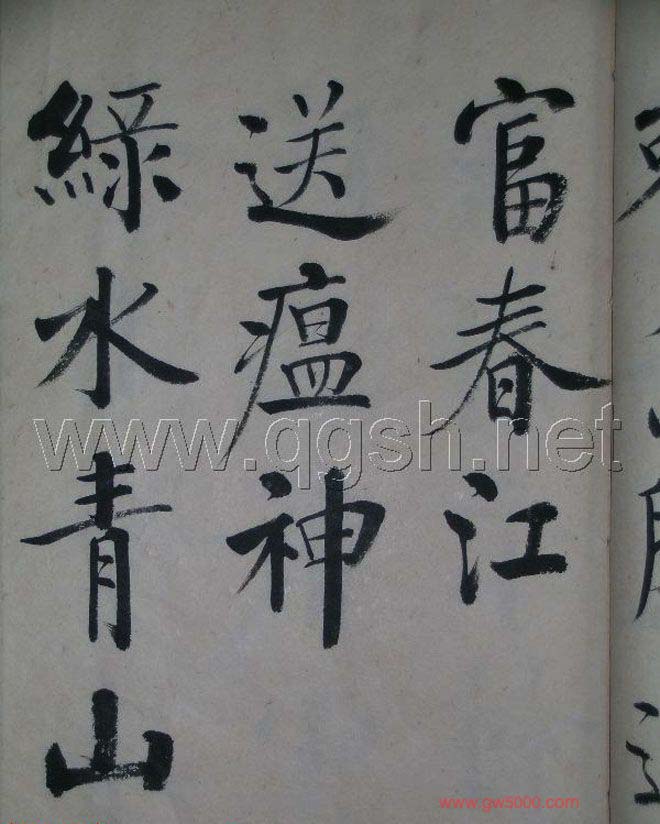 富春江
送瘟神
綠水青山
www.qgsh.net
www.gw5000.com